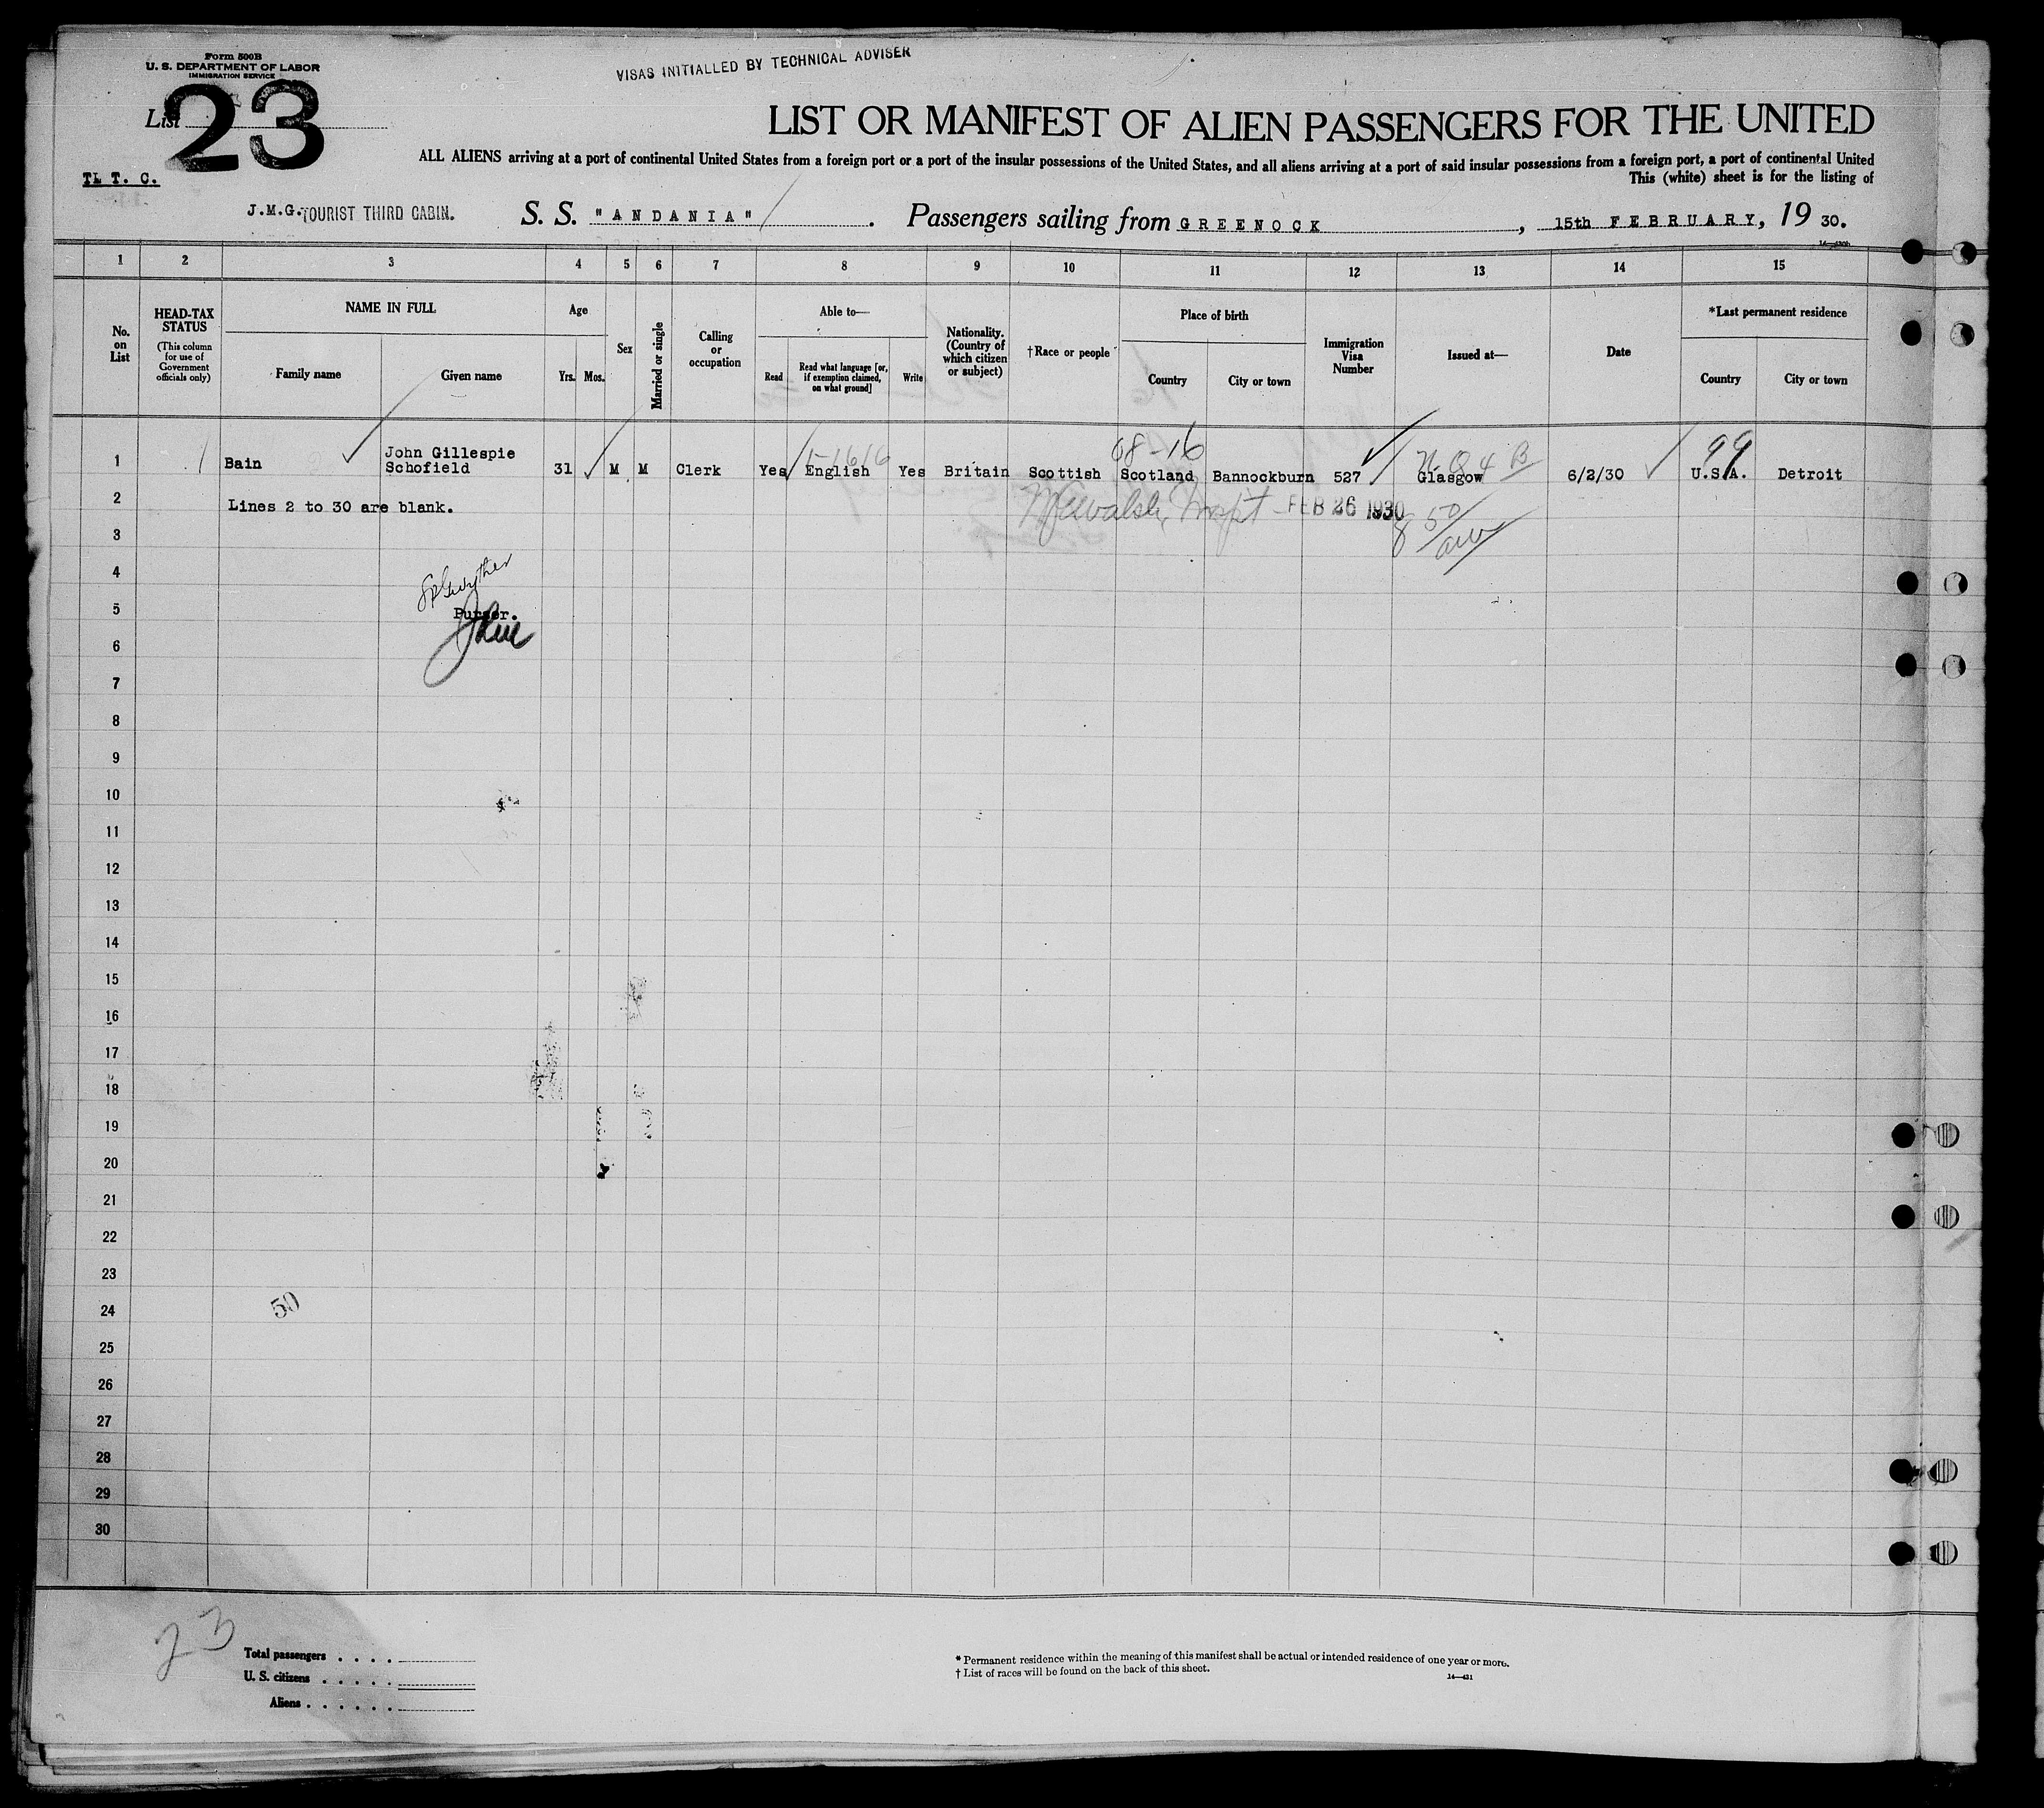 Form 500B
U. S. DEPARTMENT OF LABOR
IMMIGRATION SERVICE
VISAS INITIALLED BY TECHNICAL ADVISER
List 23
LIST OR MANIFEST OF ALIEN PASSENGERS FOR THE UNITED
ALL ALIENS arriving at a port of continental United States from a foreign port or a port of the insular possessions of the United States, and all aliens arriving at a port of said insular possessions from a foreign port, a port of continental United
This (white) sheet is for the listing of
T. C.
J.M.G. TOURIST THIRD CABIN. S. S. "ANDANIA". Passengers sailing from GREENOCK, 15th FEBRUARY, 19 30.
1 2 3 4 5 6 7 8 9 10 11 12 13 14 15
No. on List
HEAD-TAX STATUS
(This column for use of Government officials only)
NAME IN FULL
Family name
Given name
Age
Yrs. Mos.
Sex
Married or single
Calling or occupation
Able to—
Read
Read what language [or, if exemption claimed, on what ground]
Write
Nationality. (Country of which citizen or subject)
†Race or people
Place of birth
Country
City or town
Immigration Visa Number
Issued at—
Date
*Last permanent residence
Country
City or town
68-16
99
1 Bain John Gillespie Schofield 31 M M Clerk Yes English Yes Britain Scottish Scotland Bannockburn 527 Glasgow 6/2/30 U.S.A. Detroit
2 Lines 2 to 30 are blank.
FEB 26 1930
3
4
5
Purser.
6
7
8
9
10
11
12
13
14
15
16
17
18
19
20
21
22
23
24
50
25
26
27
28
29
30
23
Total passengers . . . .
U. S. citizens . . . . .
Aliens . . . . . .
* Permanent residence within the meaning of this manifest shall be actual or intended residence of one year or more.
† List of races will be found on the back of this sheet.
14—431